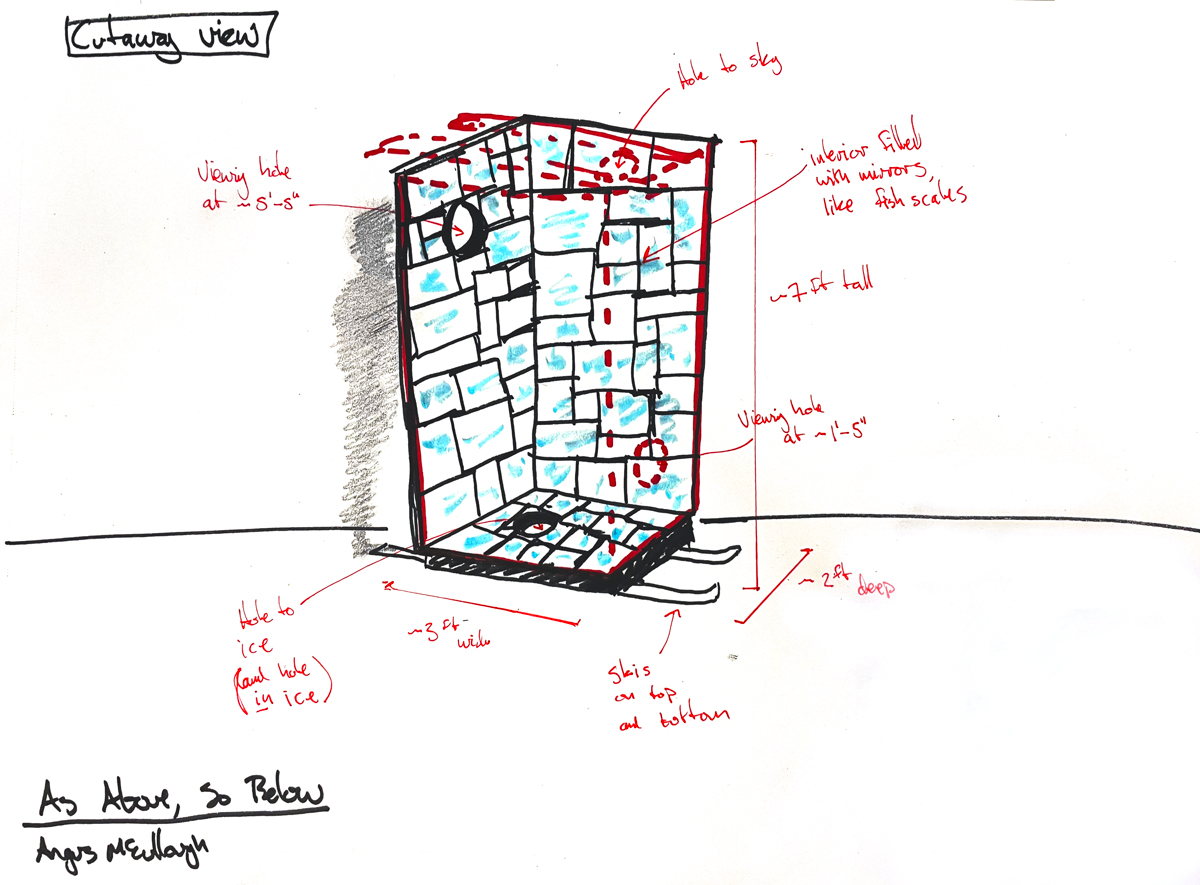 Cutaway view
Hole to sky
Viewing hole
at ~ 5'-5"
interior filled
with mirrors,
like fish scales
~7 ft tall
Viewing hole
at ~ 1'-5"
~ 2 ft deep
~3 ft wide
Hole to
ice
(and hole
in ice)
skis
on top
and bottom
As Above, So Below
Angus McCullough